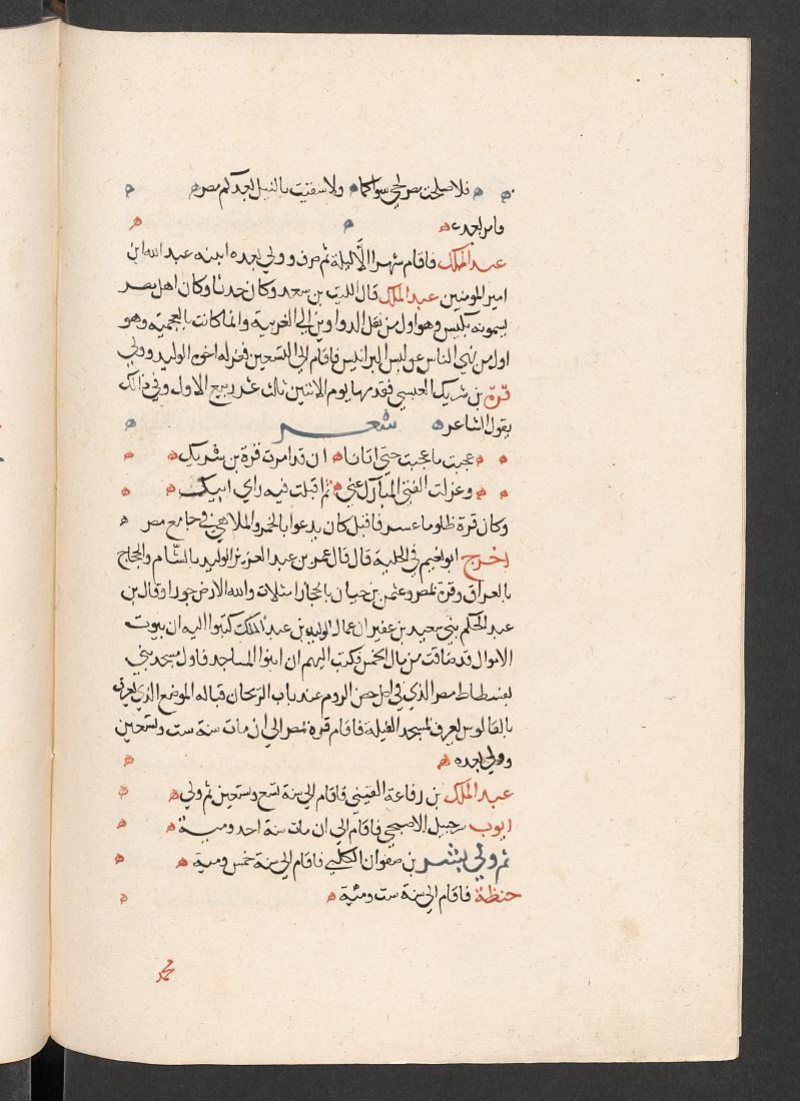 فلا صلحت مصر لحي سواكما ولا سقيت بالنيل بعدكم مصر
وامر بعده
عبد الملك فاقام شهرا الا ليلة ثم صرف وولي بعده ابنه عبد الله ابن
امير المومنين عبد الملك قال الليث بن سعد وكان حدثا وكان اهل مصر
يسمونه بكيس وهو اول من نقل الدواوين الي العربية وانما كانت بالعجمية وهو
اول من نهي الناس عن لبس البرانيس فاقام الي التسعين فعزله اخوه الوليد وولي
قرة بن شريك العبسي فقدمها يوم الاثنين ثالث عشر ربيع الاول وفي ذالك
يقول الشاعر شعر
عجبت ما عجبت حتي اتانا ان قد امرت قرة بن شريك
وعزلت الفتي المبارك عني ثم اقبلت فيه راي ابيك
وكان قرة ظلوما عسوفا قيل كان يدعوا بالخمر والملاهي في جامع مصر
اخرج ابو نعيم في الحلية قال قال عمر بن عبد العزيز الوليد بالشام والحجاج
بالعراق وقرة بمصر وعثمن بن حيان بالحجاز امتلات والله الارض جورا وقال بن
عبد الحكم بني سعيد بن عفير ان عمال الوليد بن عبد الملك كتبوا اليه ان بيوت
الاموال قد ضاقت من مال الخمس فكتب اليهم ان ابنوا المساجد فاول مسجد بني
بفسطاط مصر الذي في اصل حصن الروم عند باب الريحان قباله الموضع الذي يعرف
بالقالوس يعرف بمسجد القيلة فاقام قرة بمصر الي ان مات سنة ست وتسعين
وولي بعده
عبد الملك بن رفاعة القيني فاقام الي سنة تسع وتسعين ثم ولي
ايوب شرحبيل الاصبحي فاقام الي ان مات سنة احد ومية
ثم ولي بشر بن صفوان الكلبي فاقام الي سنة خمس ومية
حنظة فاقام الي سنة ست ومئة
محمد